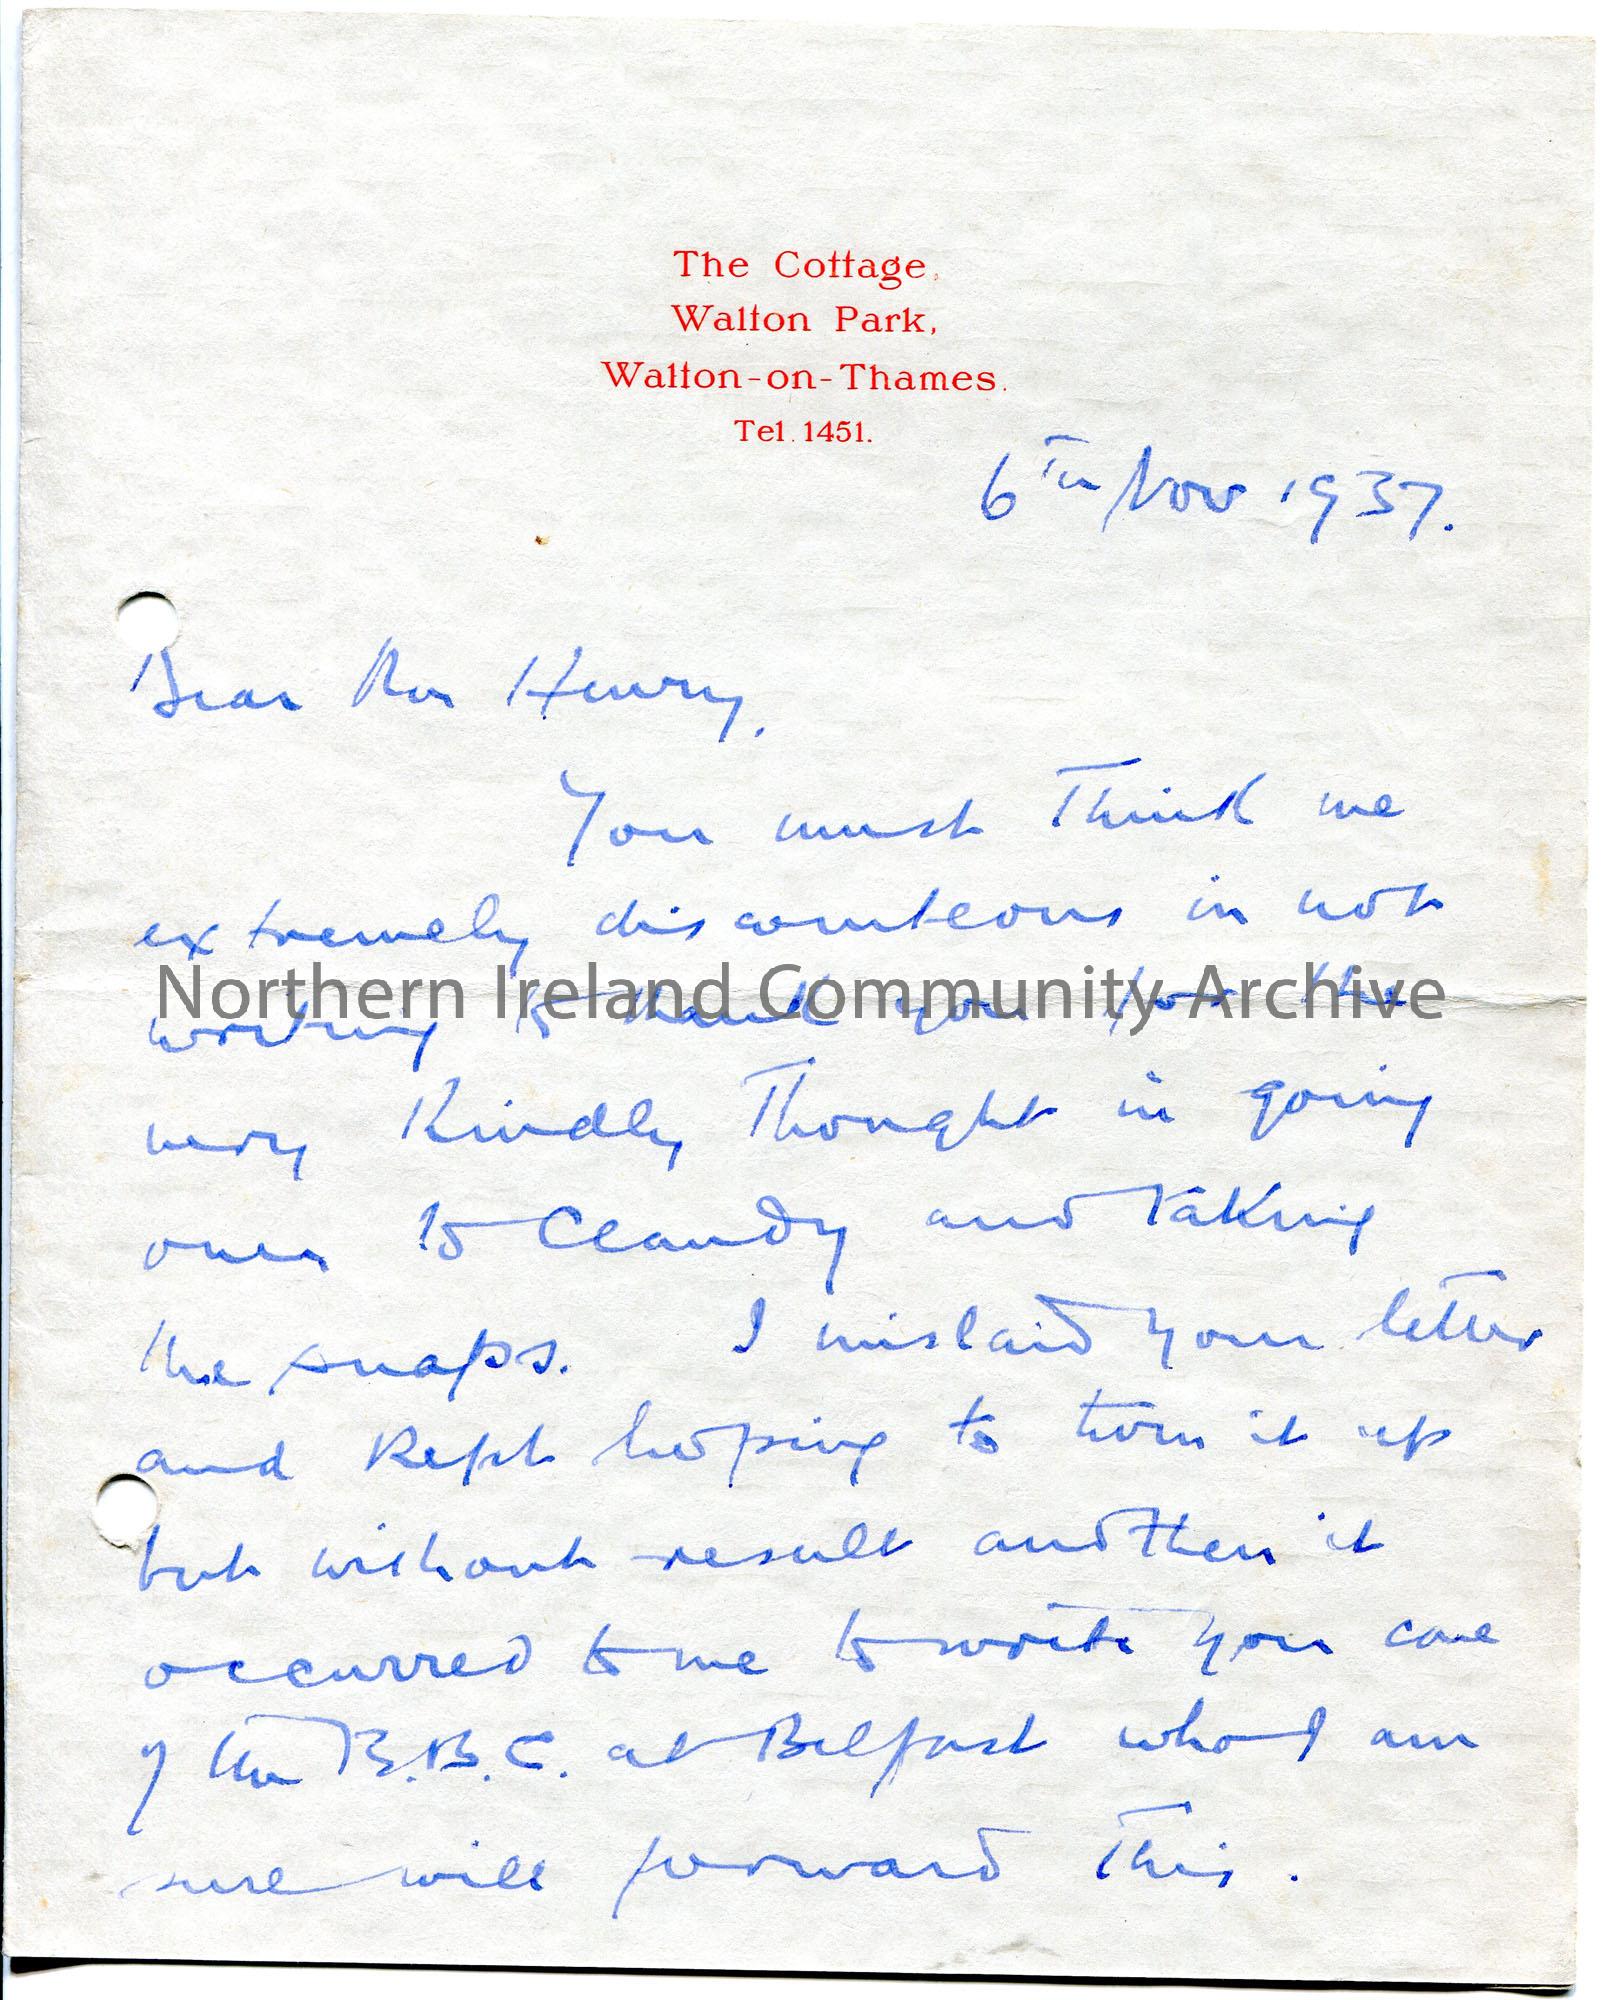 The Cottage,
Walton Park,
Walton-on-Thames.
Tel. 1451.
6th Nov 1937.
Dear Henry,
You must think me
extremely discourteous in not
Northern Ireland Community Archive
writing to thank you for the
very kindly thought in going
over to Claudy and taking
the snaps. I mislaid your letter
and kept hoping to turn it up
but without result and then it
occurred to me to write you care
of the B.B.C. at Belfast who I am
sure will forward this.